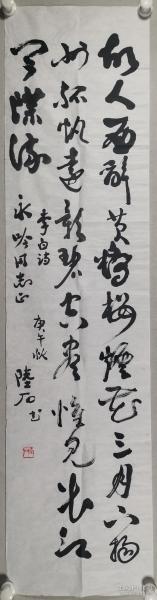 故人西辞黄鹤楼烟花三月下扬
州孤帆远影碧空尽惟见长江
天际流
李白诗
永吟同志正
庚午秋
陆石书